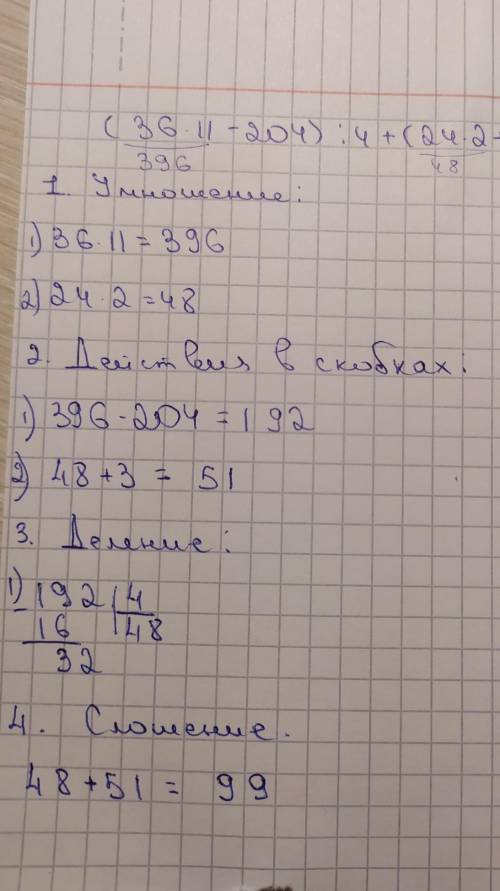 (36·11-204):4+(24·2+
396 48
1. Умножение:
1) 36·11=396
2) 24·2=48
2. Действия в скобках:
1) 396-204=192
2) 48+3=51
3. Деление:
1) 192 4
-16 48
32
4. Сложение.
48+51=99